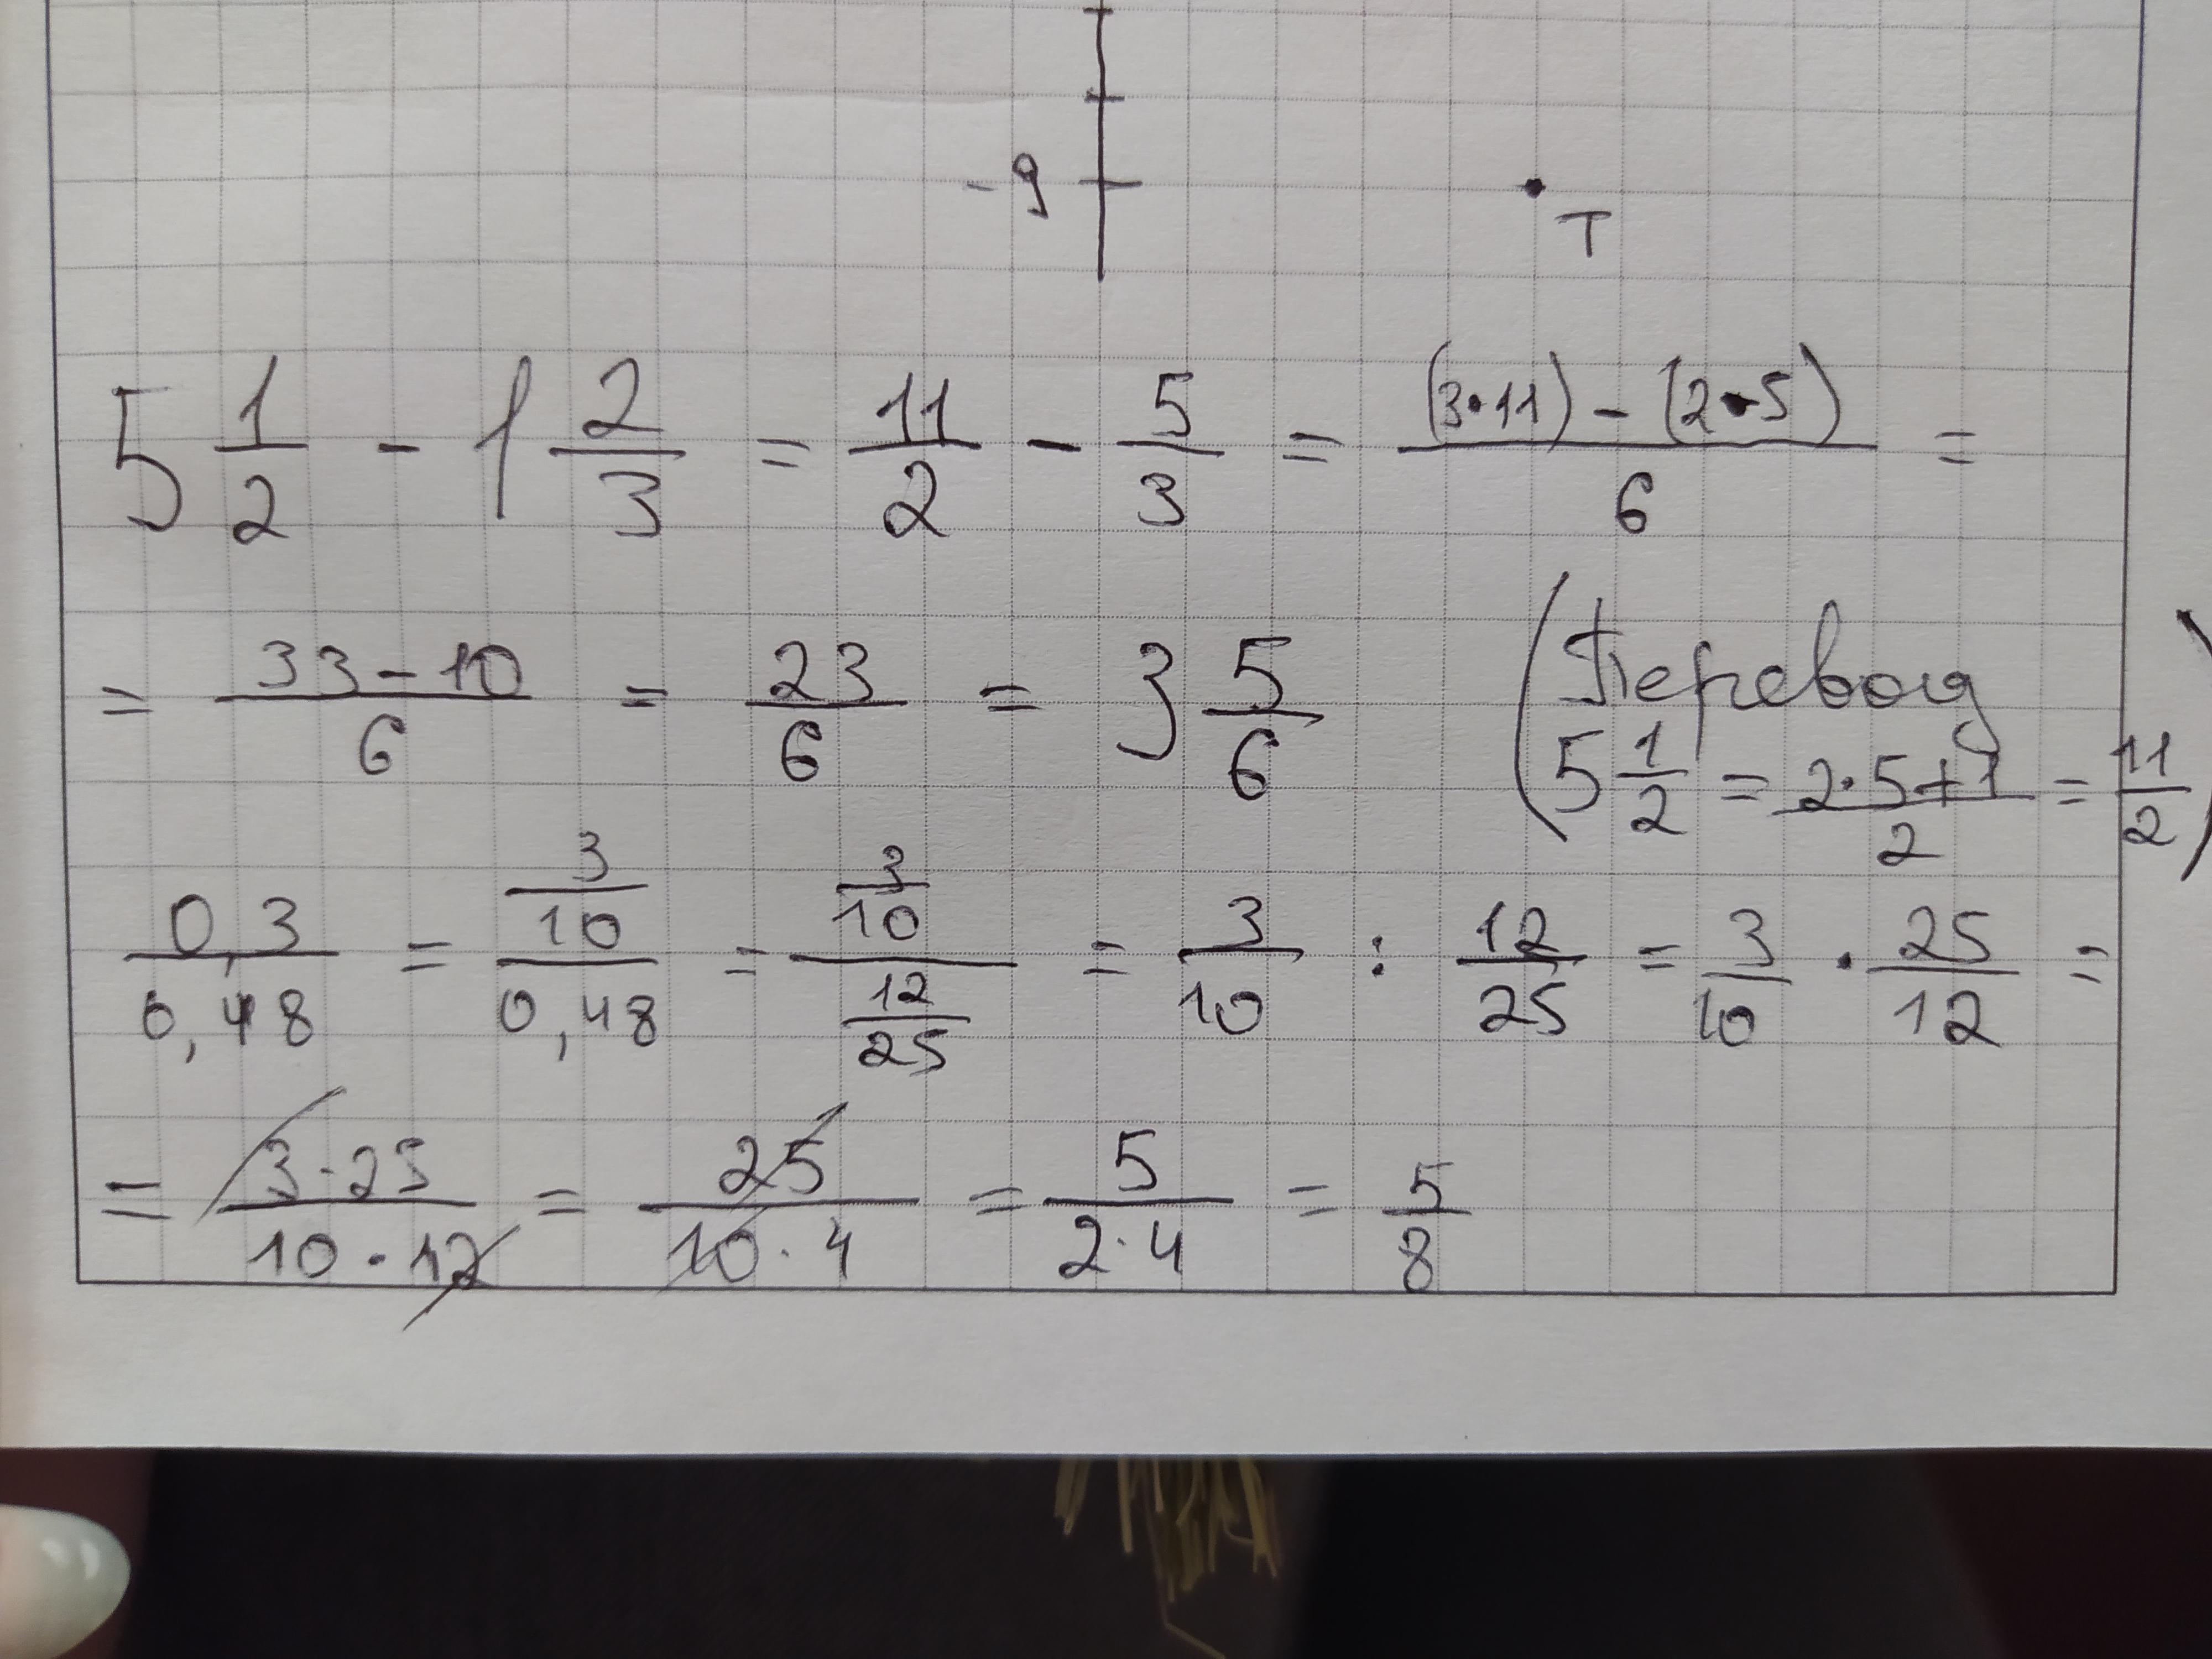 -9
T
5 1/2 - 1 2/3 = 11/2 - 5/3 = ((3·11) - (2·5))/6 =
= (33-10)/6 = 23/6 = 3 5/6 (Перевод
5 1/2 = (2·5+1)/2 = 11/2)
0,3/0,48 = (3/10)/0,48 = (3/10)/(12/25) = 3/10 : 12/25 = 3/10 · 25/12 =
= (3·25)/(10·12) = 25/(10·4) = 5/(2·4) = 5/8